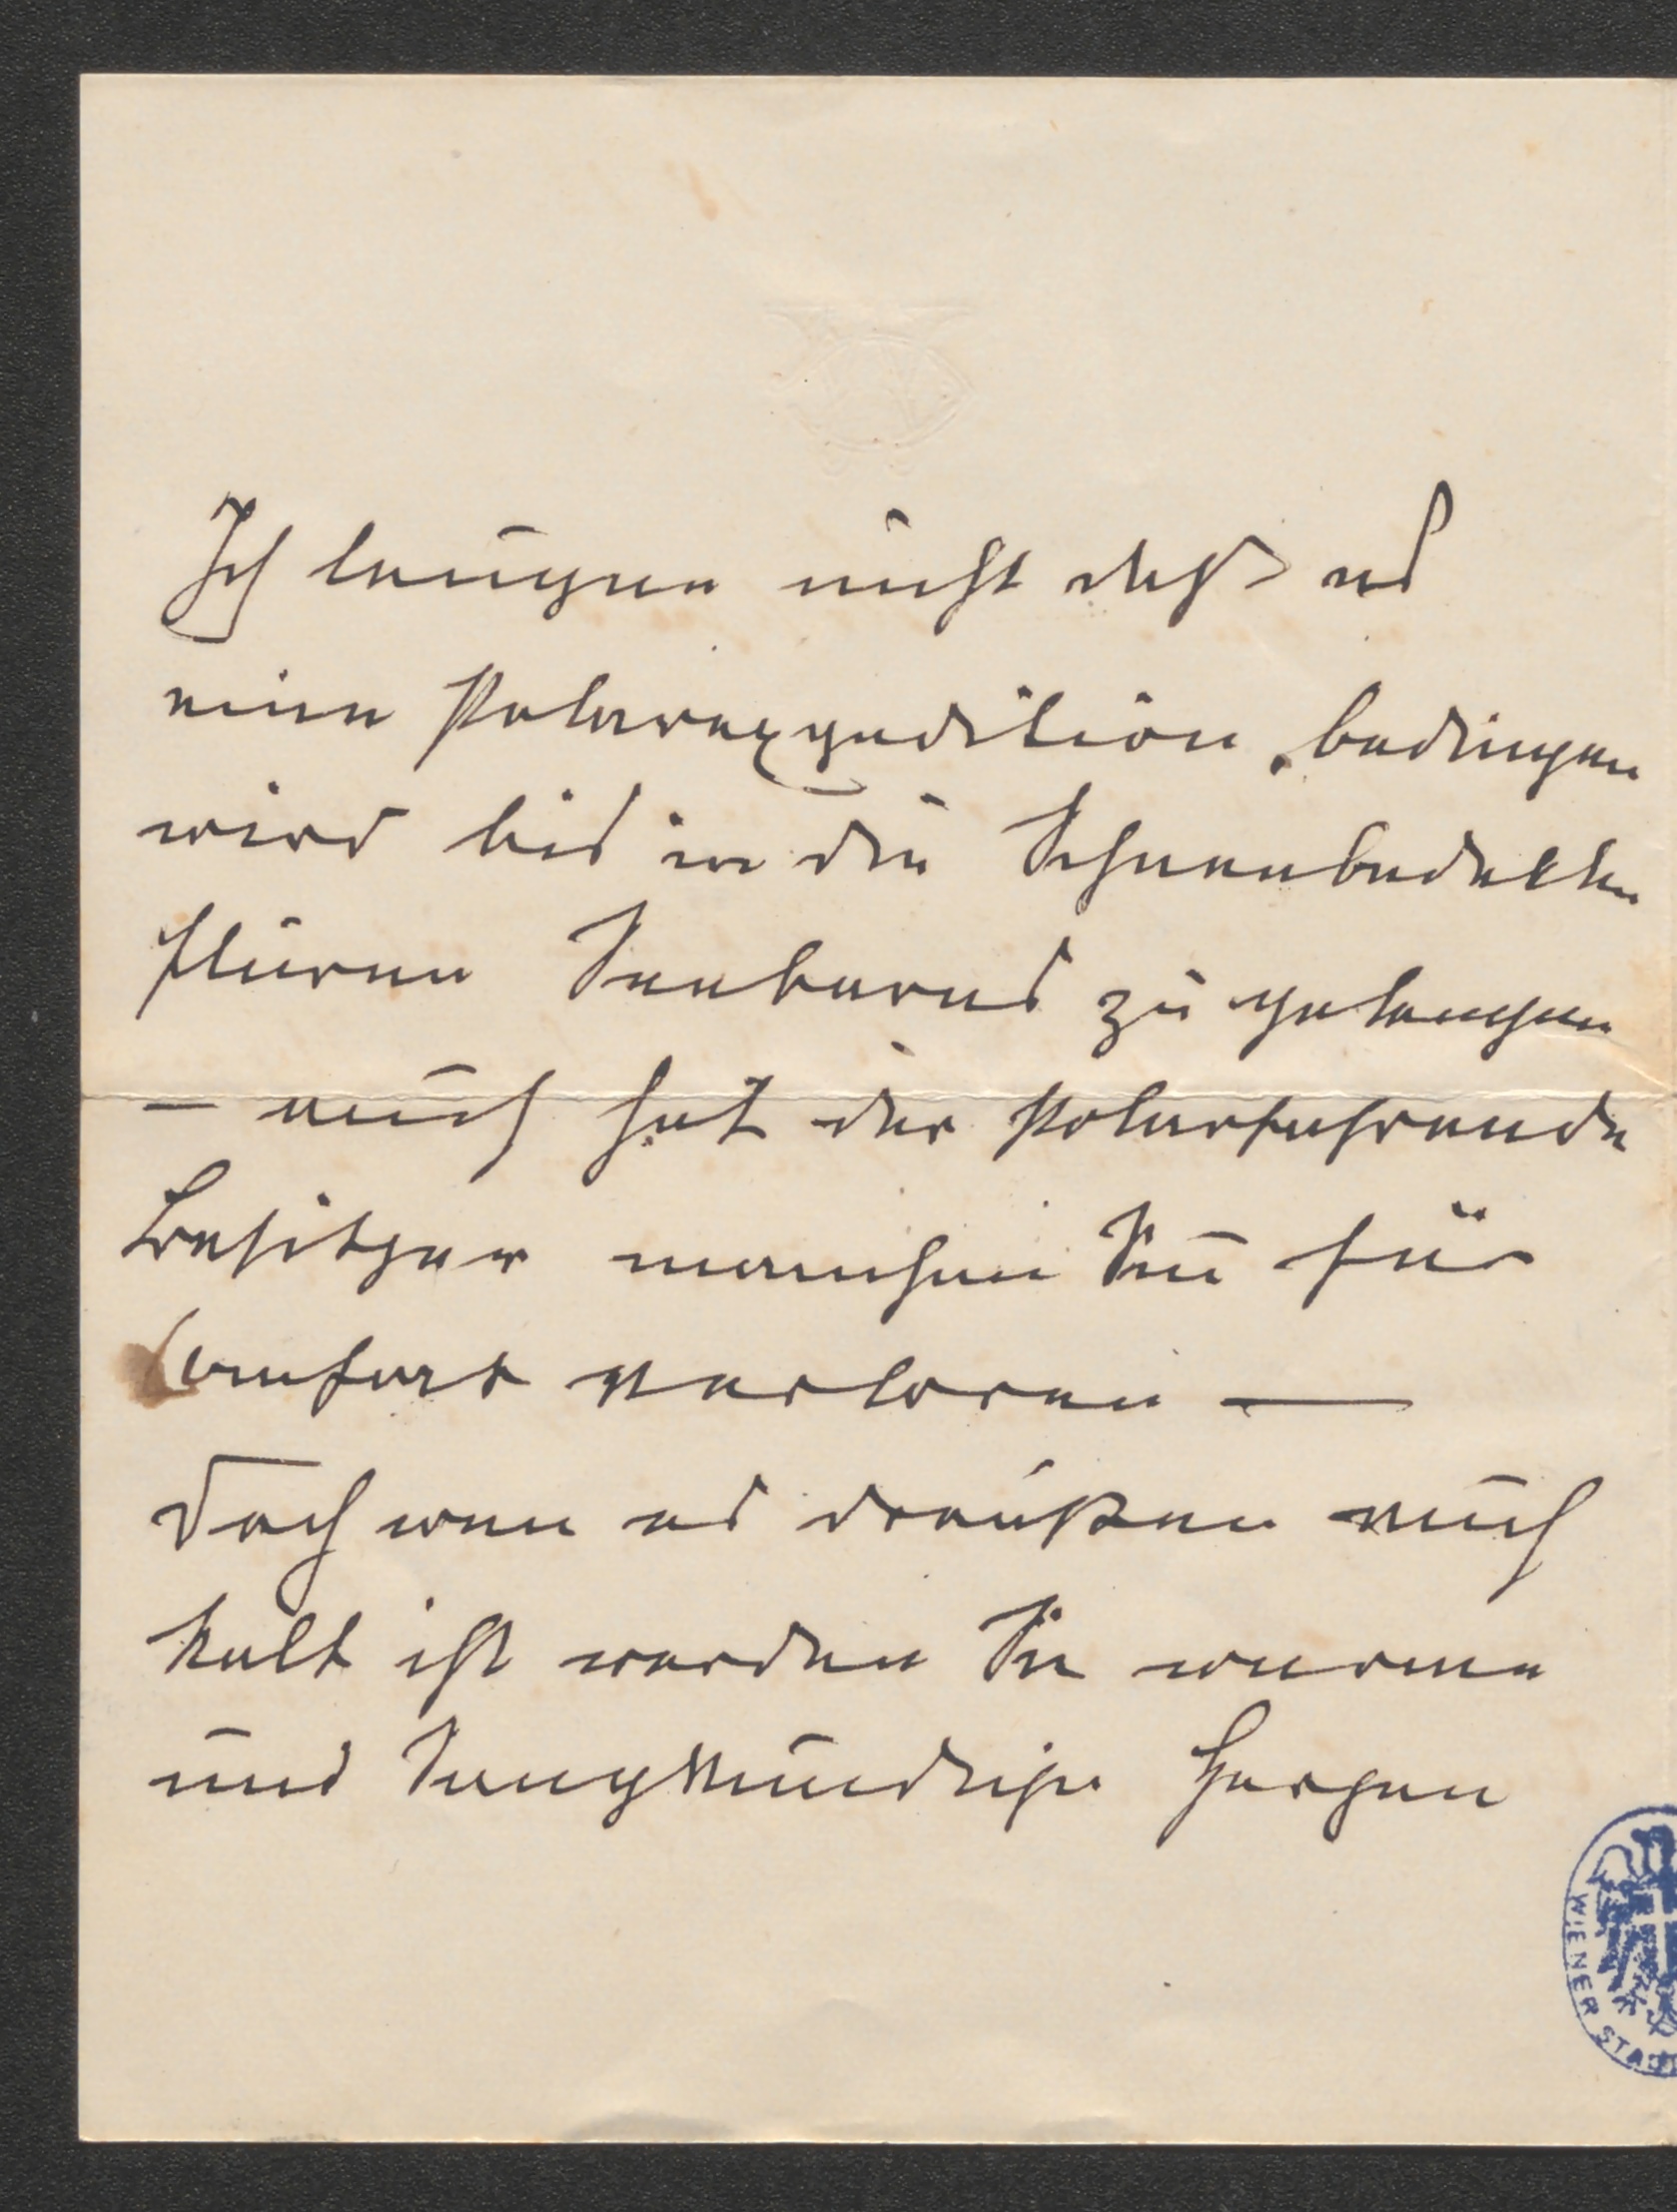 Ich leugne nicht daß es
eine Polarexpedition bedingen
wird bis in die Schneebedekten
Fluren Seebarns zu gelangen
– auch hat der Polarfahrende
Besitzer manchen Sinn für
Comfort verloren —
Doch wenn es draußen auch
kalt ist werden Sie warme
und Sangkundige Herzen
WIENER STADT